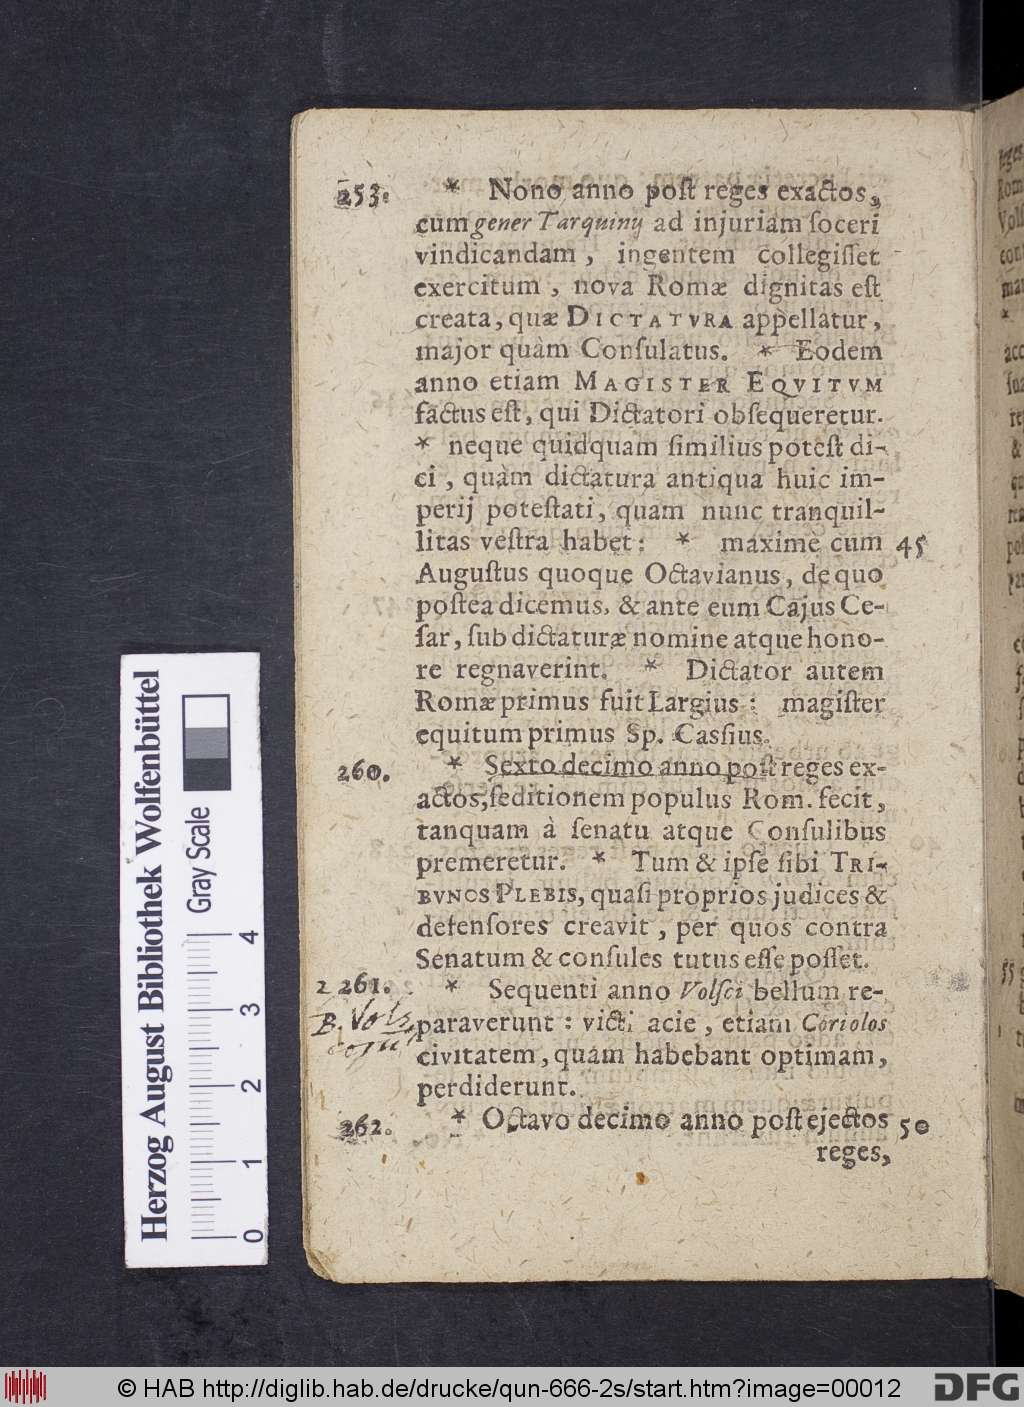 253. * Nono anno poſt reges exactos,
cum gener Tarquinij ad injuriam ſoceri
vindicandam, ingentem collegiſſet
exercitum, nova Romæ dignitas eſt
creata, quæ DICTATVRA appellatur,
major quàm Conſulatus. * Eodem
anno etiam MAGISTER EQVITVM
factus eſt, qui Dictatori obſequeretur.
* neque quidquam ſimilius poteſt di-
ci, quàm dictatura antiqua huic im-
perij poteſtati, quam nunc tranquil-
litas veſtra habet: * maximè cum 45
Auguſtus quoque Octavianus, de quo
poſtea dicemus, & ante eum Cajus Ce-
ſar, ſub dictaturæ nomine atque hono-
re regnaverint. * Dictator autem
Romæ primus fuit Largius: magiſter
equitum primus Sp. Caſſius.
260. * Sexto decimo anno poſt reges ex-
actos, ſeditionem populus Rom. fecit,
tanquam à ſenatu atque Conſulibus
premeretur. * Tum & ipſe ſibi TRI-
BVNOS PLEBIS, quaſi proprios judices &
defenſores creavit, per quos contra
Senatum & conſules tutus eſſe poſſet.
2 261. * Sequenti anno Volſci bellum re-
B. Vols paraverunt: victi acie, etiam Coriolos
civitatem, quam habebant optimam,
perdiderunt.
262. * Octavo decimo anno poſt ejectos 50
reges,
Herzog August Bibliothek Wolfenbüttel
Gray Scale
0 1 2 3 4
55
© HAB http://diglib.hab.de/drucke/qun-666-2s/start.htm?image=00012
DFG